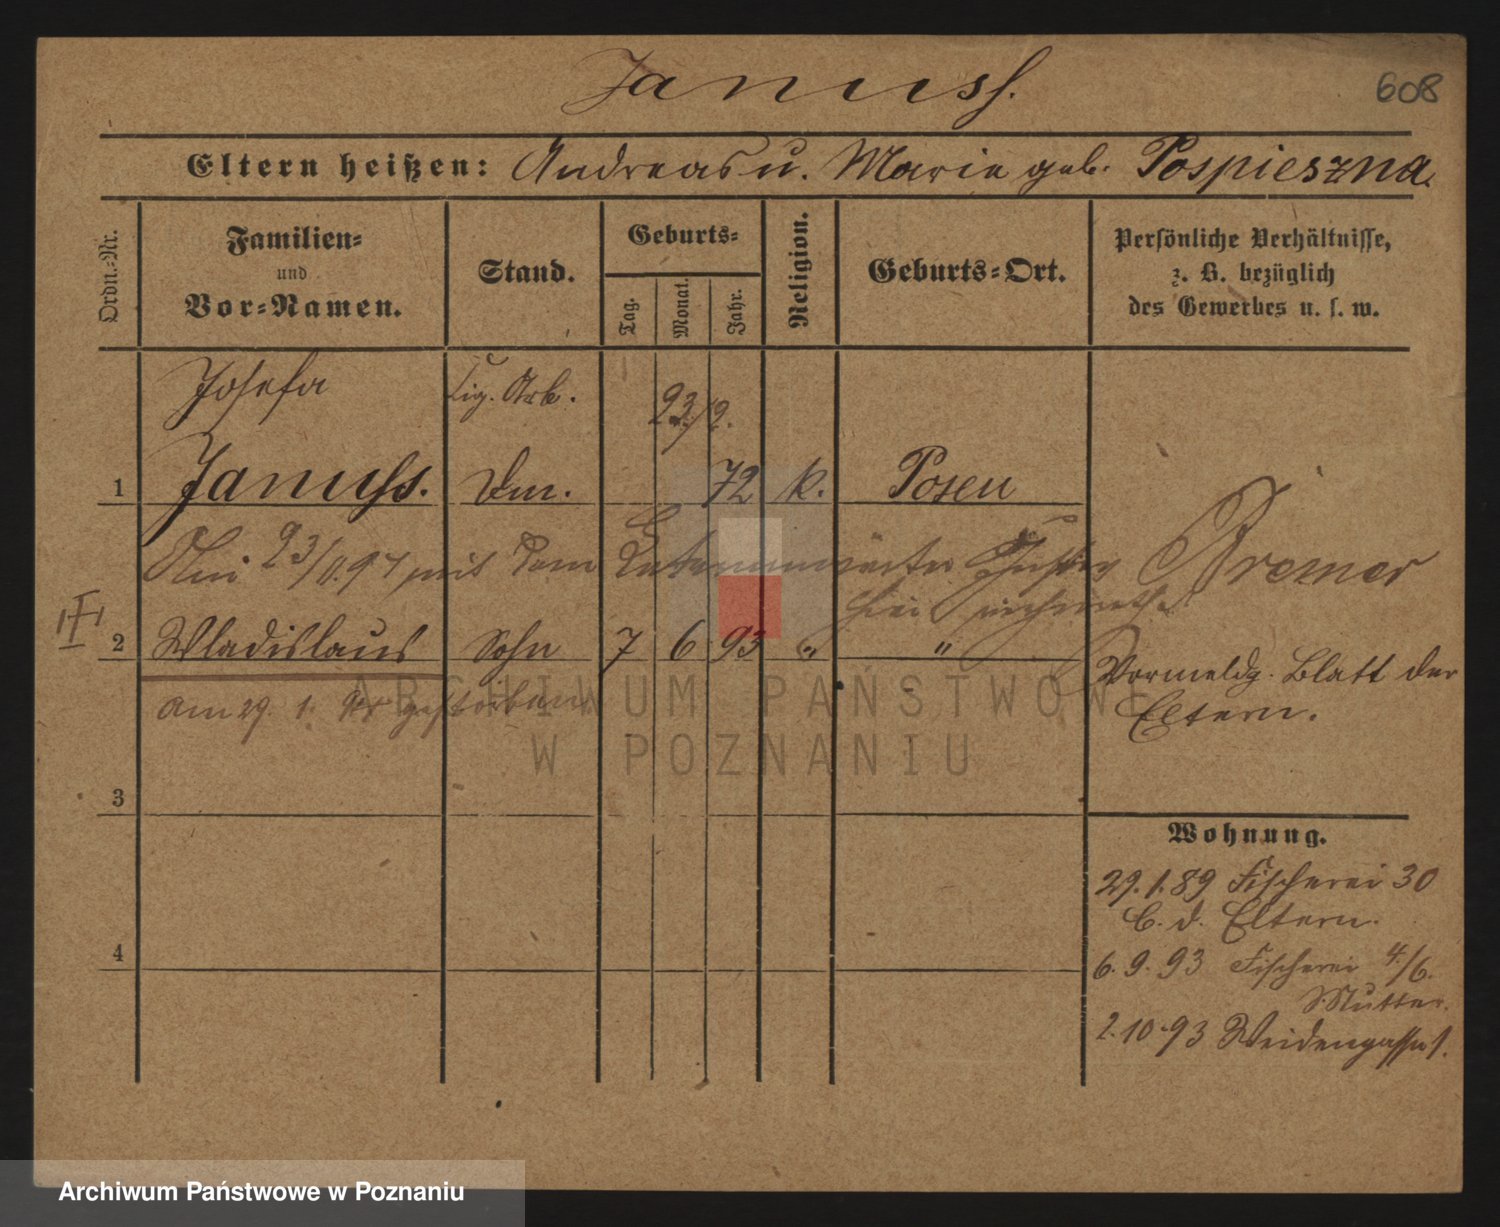 Januss.
608
Eltern heißen: Andreas u. Marie geb. Pospieszna.
Ordn.-Nr.
Familien-
und
Vor-Namen.
Stand.
Geburts-
Tag.
Monat.
Jahr.
Religion.
Geburts-Ort.
Persönliche Verhältnisse,
z. B. bezüglich
des Gewerbes u. s. w.
Josefa
Cig. Arb.
23./2.
1 Januss. 72 k. Posen
23/ mit dem
Kremer
2 Wladislaus Sohn 7 6. 93 " "
Vormeldg. Blatt der
Eltern.
am 29. 1. gestorben
3
4
Wohnung.
29.1.89 Fischerei 30
b. d. Eltern.
6.9.93 Fischerei 4/6.
Mutter.
2.10.93 Weidengasse 1.
ARCHIWUM PAŃSTWOWE
W POZNANIU
Archiwum Państwowe w Poznaniu